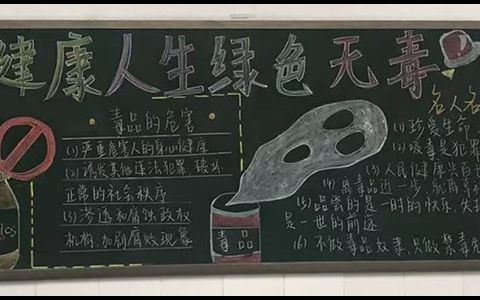 健康人生绿色无毒
毒品的危害
(1)严重危害人的身心健康
(2)诱发其他违法犯罪 破坏
正常的社会秩序
(3)渗透和腐蚀政权
机构,加剧腐败现象
ics
毒品
名人名
(1)珍爱生命
(2)吸毒是犯罪
(3)人民健康
(4)离毒品近一步,
(5)品尝的是一时的快乐,失
是一世的前途
(6)不做毒品奴隶,只做禁毒先